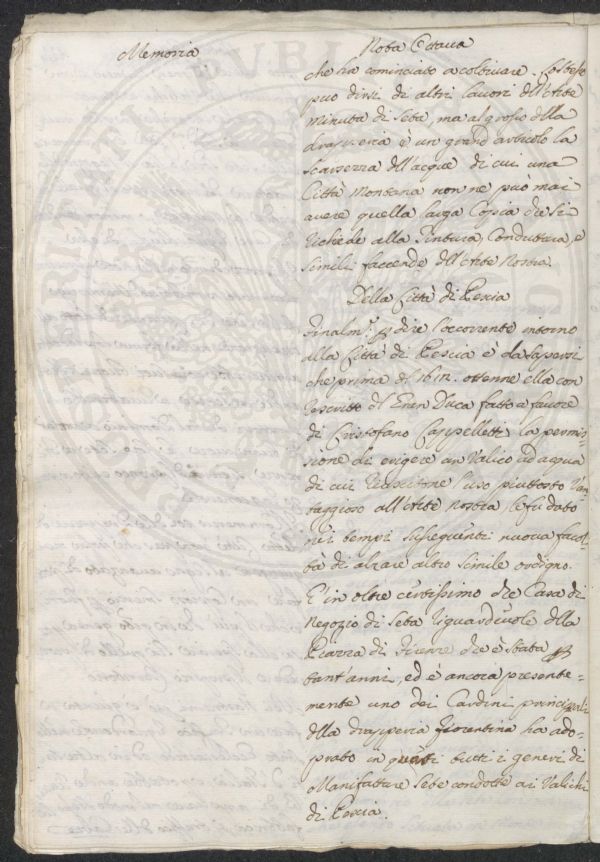 Memoria
Nota Ottava
che ha cominciato a coltivare. Lo stesso
può dirsi di altri lavori dell'Arte
minuta di Seta, ma al grosso della
drapperia è un grand'articolo la
scarsezza dell'acque di cui una
Città Montana non ne può mai
avere quella larga Copia che si
richiede alla Tintura, Condottura, e
simili faccende dell'Arte Nostra.
Della Città di Pescia
Finalm.e p dire l'occorrente intorno
alla Città di Pescia è da sapersi
che prima del 1617. ottenne ella con
rescritto del Gran Duca fatto a favore
di Cristofano Cappelletti la permis-
sione di erigere un Valico ad acqua
di cui riuscitone l'uso piuttosto Van-
taggioso all'Arte nostra, le fu dato
nei tempi susseguenti nuova facol-
tà di alzare altro simile ordigno.
E' in oltre certissimo che Casa di
Negozio di Seta riguardevole della
Piazza di Firenze che è stata p
tant'anni, ed è ancora presente-
mente uno dei Cardini principali
della drapperia fiorentina ha ado-
prato in questi tutti i generi di
Manifatture Sete condotte ai Valichi
di Pescia.